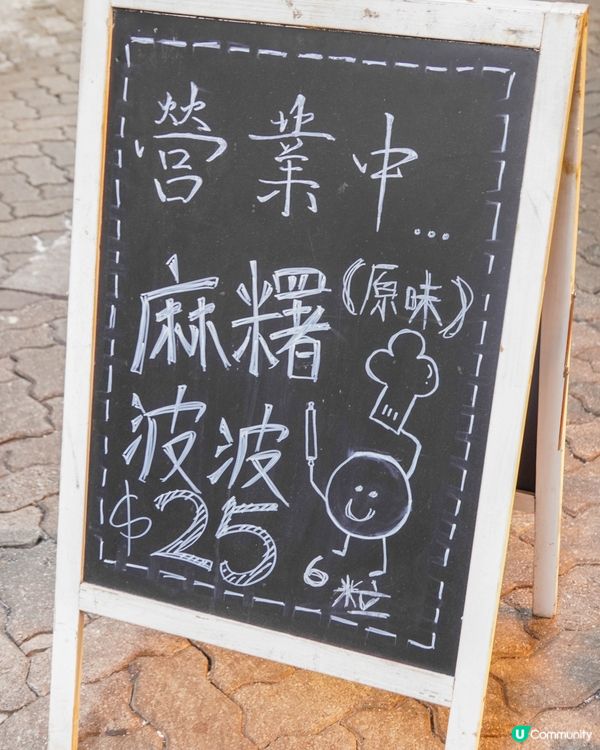 營業中...
麻糬(原味)
波波
$25
6粒
U Community